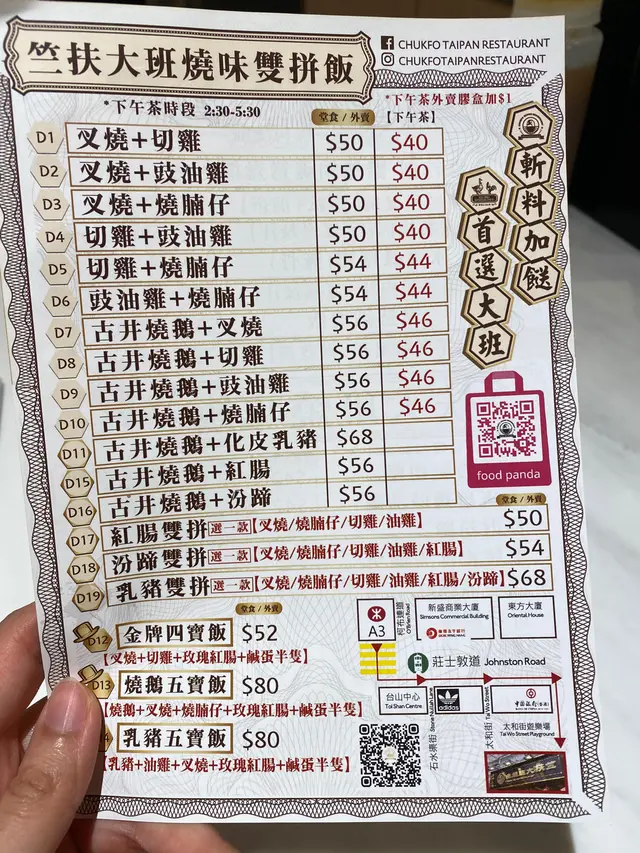 竺扶大班燒味雙拼飯
CHUKFO TAIPAN RESTAURANT
CHUKFOTAIPANRESTAURANT
*下午茶時段 2:30-5:30
堂食 / 外賣
*下午茶外賣膠盒加$1
【下午茶】
D1 叉燒+切雞 $50 $40
D2 叉燒+豉油雞 $50 $40
D3 叉燒+燒腩仔 $50 $40
D4 切雞+豉油雞 $50 $40
D5 切雞+燒腩仔 $54 $44
D6 豉油雞+燒腩仔 $54 $44
D7 古井燒鵝+叉燒 $56 $46
D8 古井燒鵝+切雞 $56 $46
D9 古井燒鵝+豉油雞 $56 $46
D10 古井燒鵝+燒腩仔 $56 $46
D11 古井燒鵝+化皮乳豬 $68
D15 古井燒鵝+紅腸 $56
D16 古井燒鵝+汾蹄 $56
堂食 / 外賣
D17 紅腸雙拼 選一款【叉燒/燒腩仔/切雞/油雞】 $50
D18 汾蹄雙拼 選一款【叉燒/燒腩仔/切雞/油雞/紅腸】 $54
D19 乳豬雙拼 選一款【叉燒/燒腩仔/切雞/油雞/紅腸/汾蹄】 $68
斬料加餸
首選大班
food panda
堂食 / 外賣
D12 金牌四寶飯 $52
【叉燒+切雞+玫瑰紅腸+鹹蛋半隻】
D13 燒鵝五寶飯 $80
【燒鵝+叉燒+燒腩仔+玫瑰紅腸+鹹蛋半隻】
4 乳豬五寶飯 $80
【乳豬+油雞+叉燒+玫瑰紅腸+鹹蛋半隻】
A3
柯布連道
O'Brien Road
新盛商業大廈
Simsons Commercial Building
東方大廈
Oriental House
莊士敦道 Johnston Road
台山中心
Toi Shan Centre
石水渠街 Stone Nullah Lane
adidas
太和街 Tai Wo Street
中國銀行(香港)
太和街遊樂場
Tai Wo Street Playground